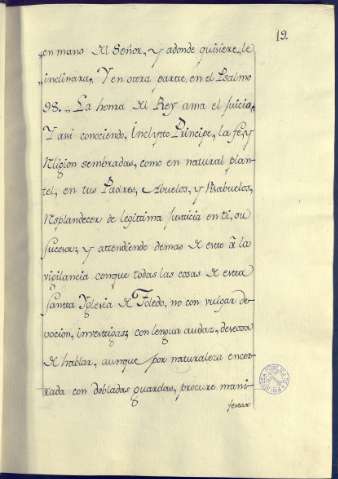 19.
en mano del Señor, y adonde quisiere le
inclinara, Y en otra parte, en el Psalmo
98. La honra del Rey ama el juicio,
Y assi conociendo, Inclyto Principe, la fe, y
Religion sembradas, como en natural plan-
tel, en tus Padres, Abuelos, y Bisabuelos,
Resplandecer de legitima Justicia en ti, su
sucesor; y attendiendo demas de esto â la
vigilancia conque todas las cosas de esta
Santa Iglesia de Toledo, no con vulgar de-
vocion, investigas; con lengua audaz, deseosa
de hablar, aunque por naturaleza encer-
rada con dobladas guardas, procure mani-
festar